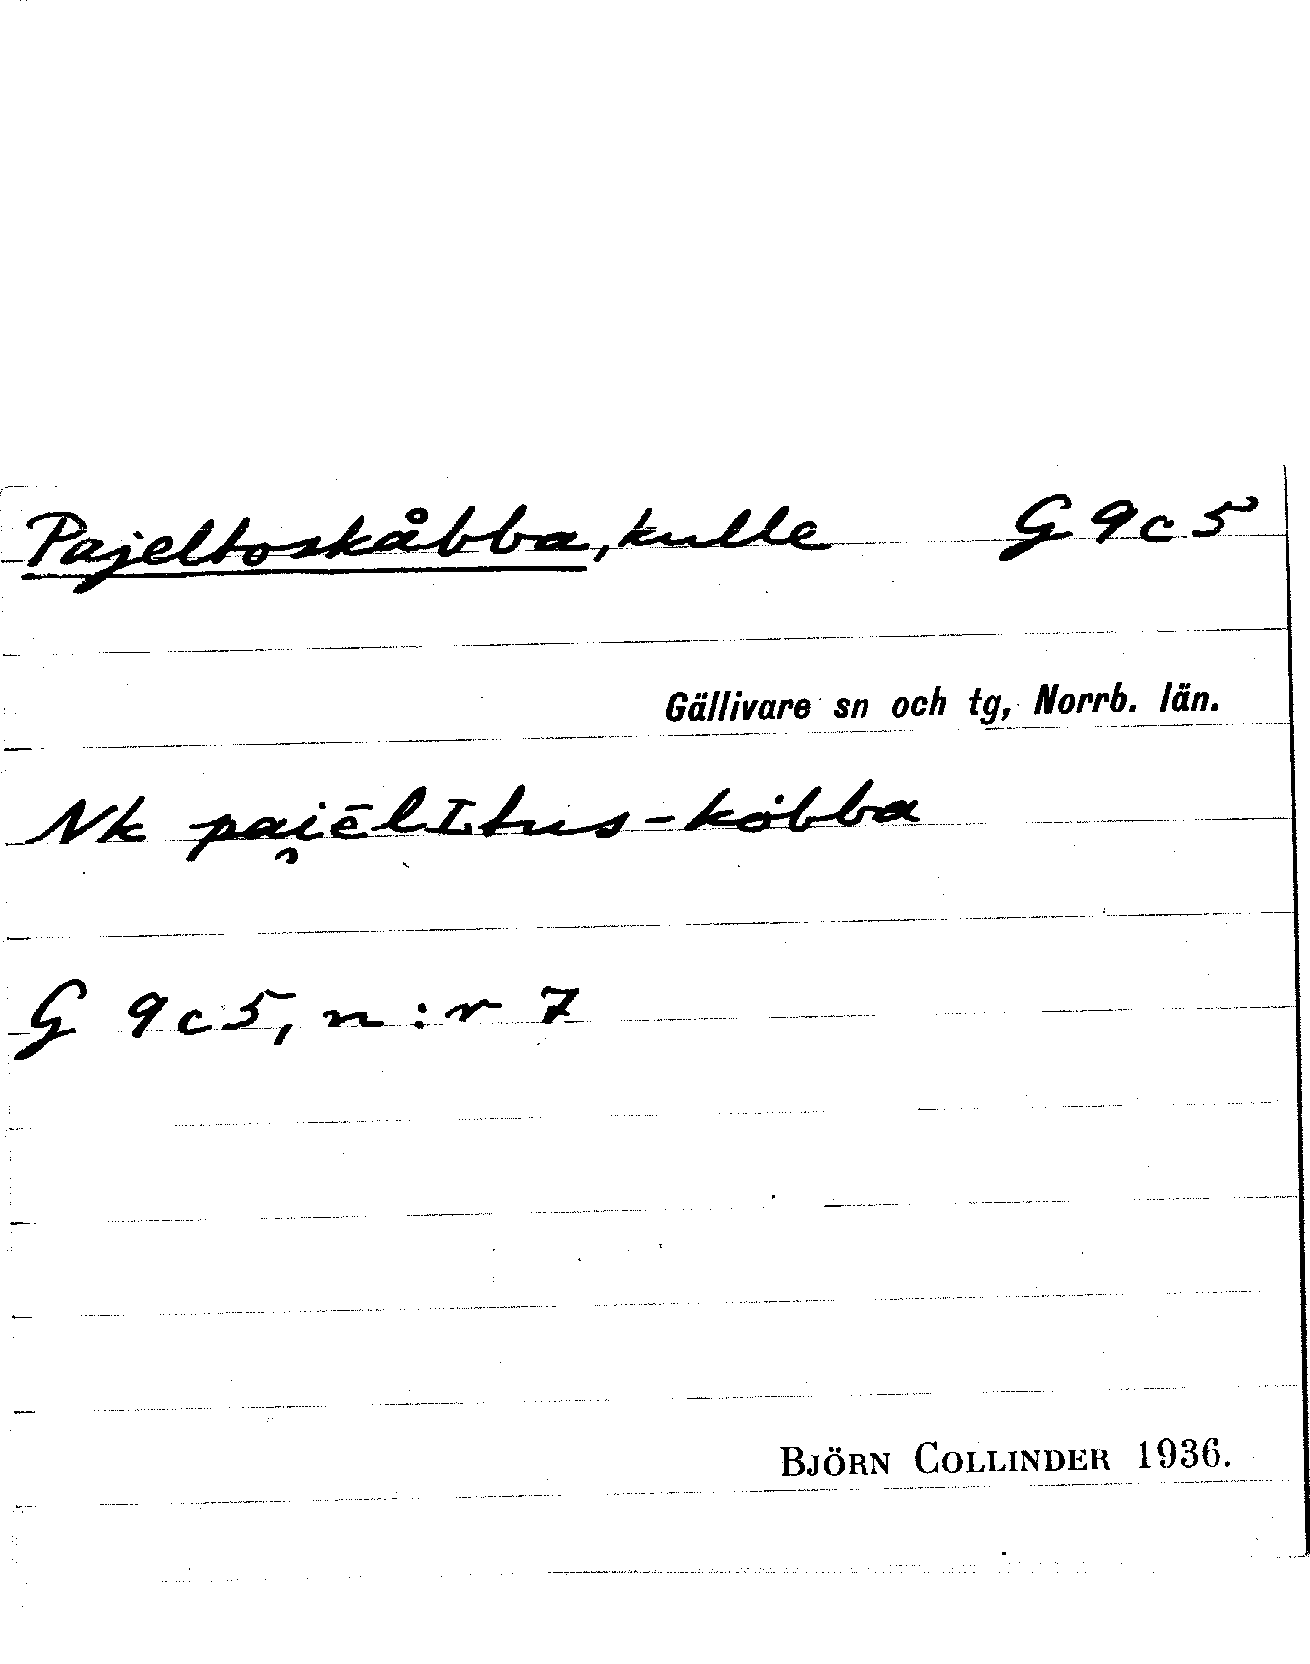 Pajeltoskåbba, kulle G 9c5
Gällivare sn och tg, Norrb. län.
Nk pai̯ēlItus-kȯbba
G 9c5, n:r 7
BJÖRN COLLINDER 1936.